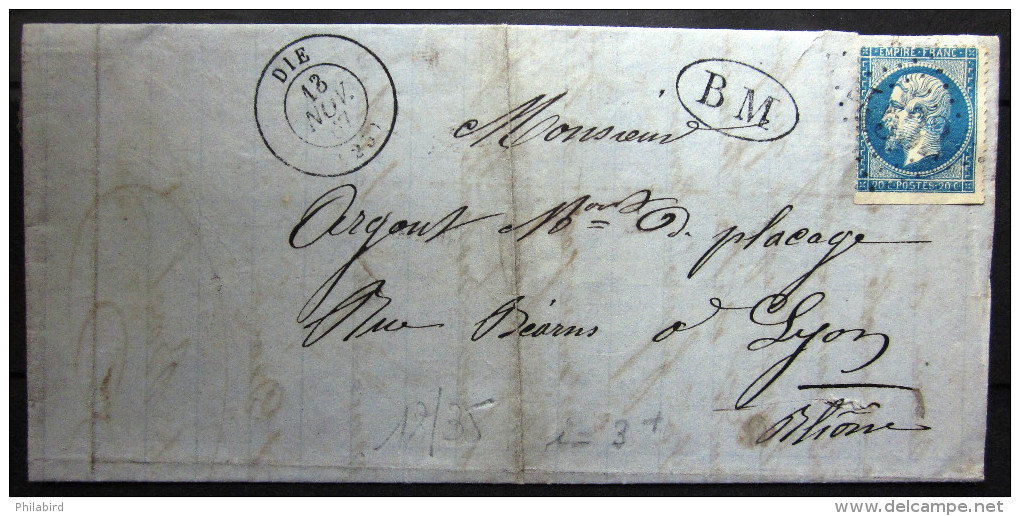 DIE
13
NOV.
(25)
BM
EMPIRE FRANC.
20 C POSTES 20 C
Monsieur
Argent Md de placage
Rue Béarn à Lyon
Rhône
18/35
3+
Philabird
www.delcampe.net